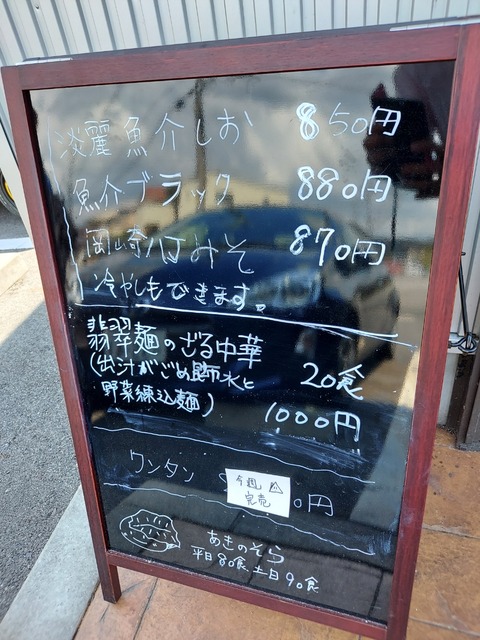 淡麗魚介しお 850円
魚介ブラック 880円
岡崎八丁みそ 870円
冷やしもできます。
翡翠麺のざる中華
(出汁がごめ昆布水と 20食
野菜練込麺) 1000円
ワンタン 0円
今週
完売
あきのそら
平日80食 土日90食